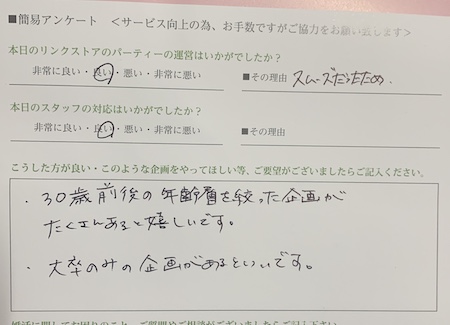 ■簡易アンケート ＜サービス向上の為、お手数ですがご協力をお願い致します＞
本日のリンクストアのパーティーの運営はいかがでしたか？
非常に良い・良い・悪い・非常に悪い ■その理由 スムーズだったため。
本日のスタッフの対応はいかがでしたか？
非常に良い・良い・悪い・非常に悪い ■その理由
こうした方が良い・このような企画をやってほしい等、ご要望がございましたらご記入ください。
・30歳前後の年齢層を絞った企画が
たくさんあると嬉しいです。
・大卒のみの企画があるといいです。
婚活に関してお困りのこと、ご質問やご相談がございましたらご記入下さい